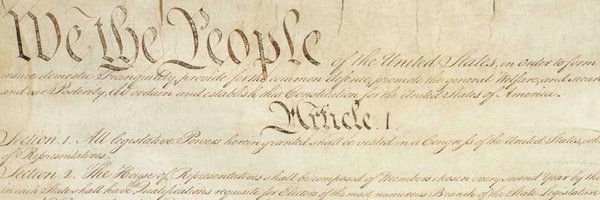 We the People of the United States, in Order to form
insure domestic Tranquility, provide for the common defence, promote the general Welfare, and secure
and our Posterity, do ordain and establish this Constitution for the United States of America.
Article. I.
Section. 1. All legislative Powers herein granted shall be vested in a Congress of the United States, which
of Representatives.
Section. 2. The House of Representatives shall be composed of Members chosen every second Year by the
in each State shall have Qualifications requisite for Electors of the most numerous Branch of the State Legislature